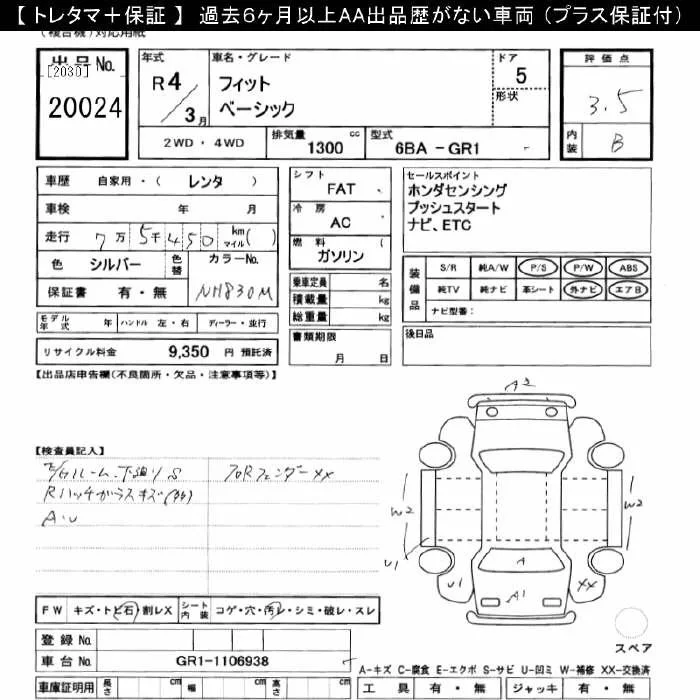 【トレタマ＋保証】 過去6ヶ月以上AA出品歴がない車両（プラス保証付）
(複合機)対応用紙
出品No.
[2030]
20024
年式
R4/3月
車名・グレード
フィット
ベーシック
ドア
5
形状
2WD・4WD
排気量 cc
1300
型式
6BA -GR1 -
評価点
3.5
内装
B
車歴 自家用・( レンタ )
車検 年 月
走行 7万5千450 kmマイル( )
色 シルバー 色替 カラーNo.
保証書 有・無 NH830M
シフト
FAT
冷房
AC
燃料 ( )
ガソリン
乗車定員 名
積載量 kg
総重量 kg
書類期限
月 日
セールスポイント
ホンダセンシング
プッシュスタート
ナビ、ETC
装備品
S/R 純A/W P/S P/W ABS
純TV 純ナビ 革シート 外ナビ エアB
ナビ型番：
後日品
モデル年式 年 ハンドル 左・右 ディーラー・並行
リサイクル料金 9,350 円 預託済
【出品店申告欄(不良箇所・欠品・注意事項等)】
【検査員記入】
E/Gルーム、下廻りS
コアRフェンダーXX
Rハッチガラスキズ
A・U
A3
W2
W2
U1
U1
A
A1
XX
スペア
FW キズ・トビ石・割レX シート内装 コゲ・穴・汚レ・シミ・破レ・スレ
登録No.
車台No. GR1-1106938
A-キズ C-腐食 E-エクボ S-サビ U-凹ミ W-補修 XX-交換済
車庫証明用 長さ cm 幅 cm 高さ cm 工具 有・無 ジャッキ 有・無